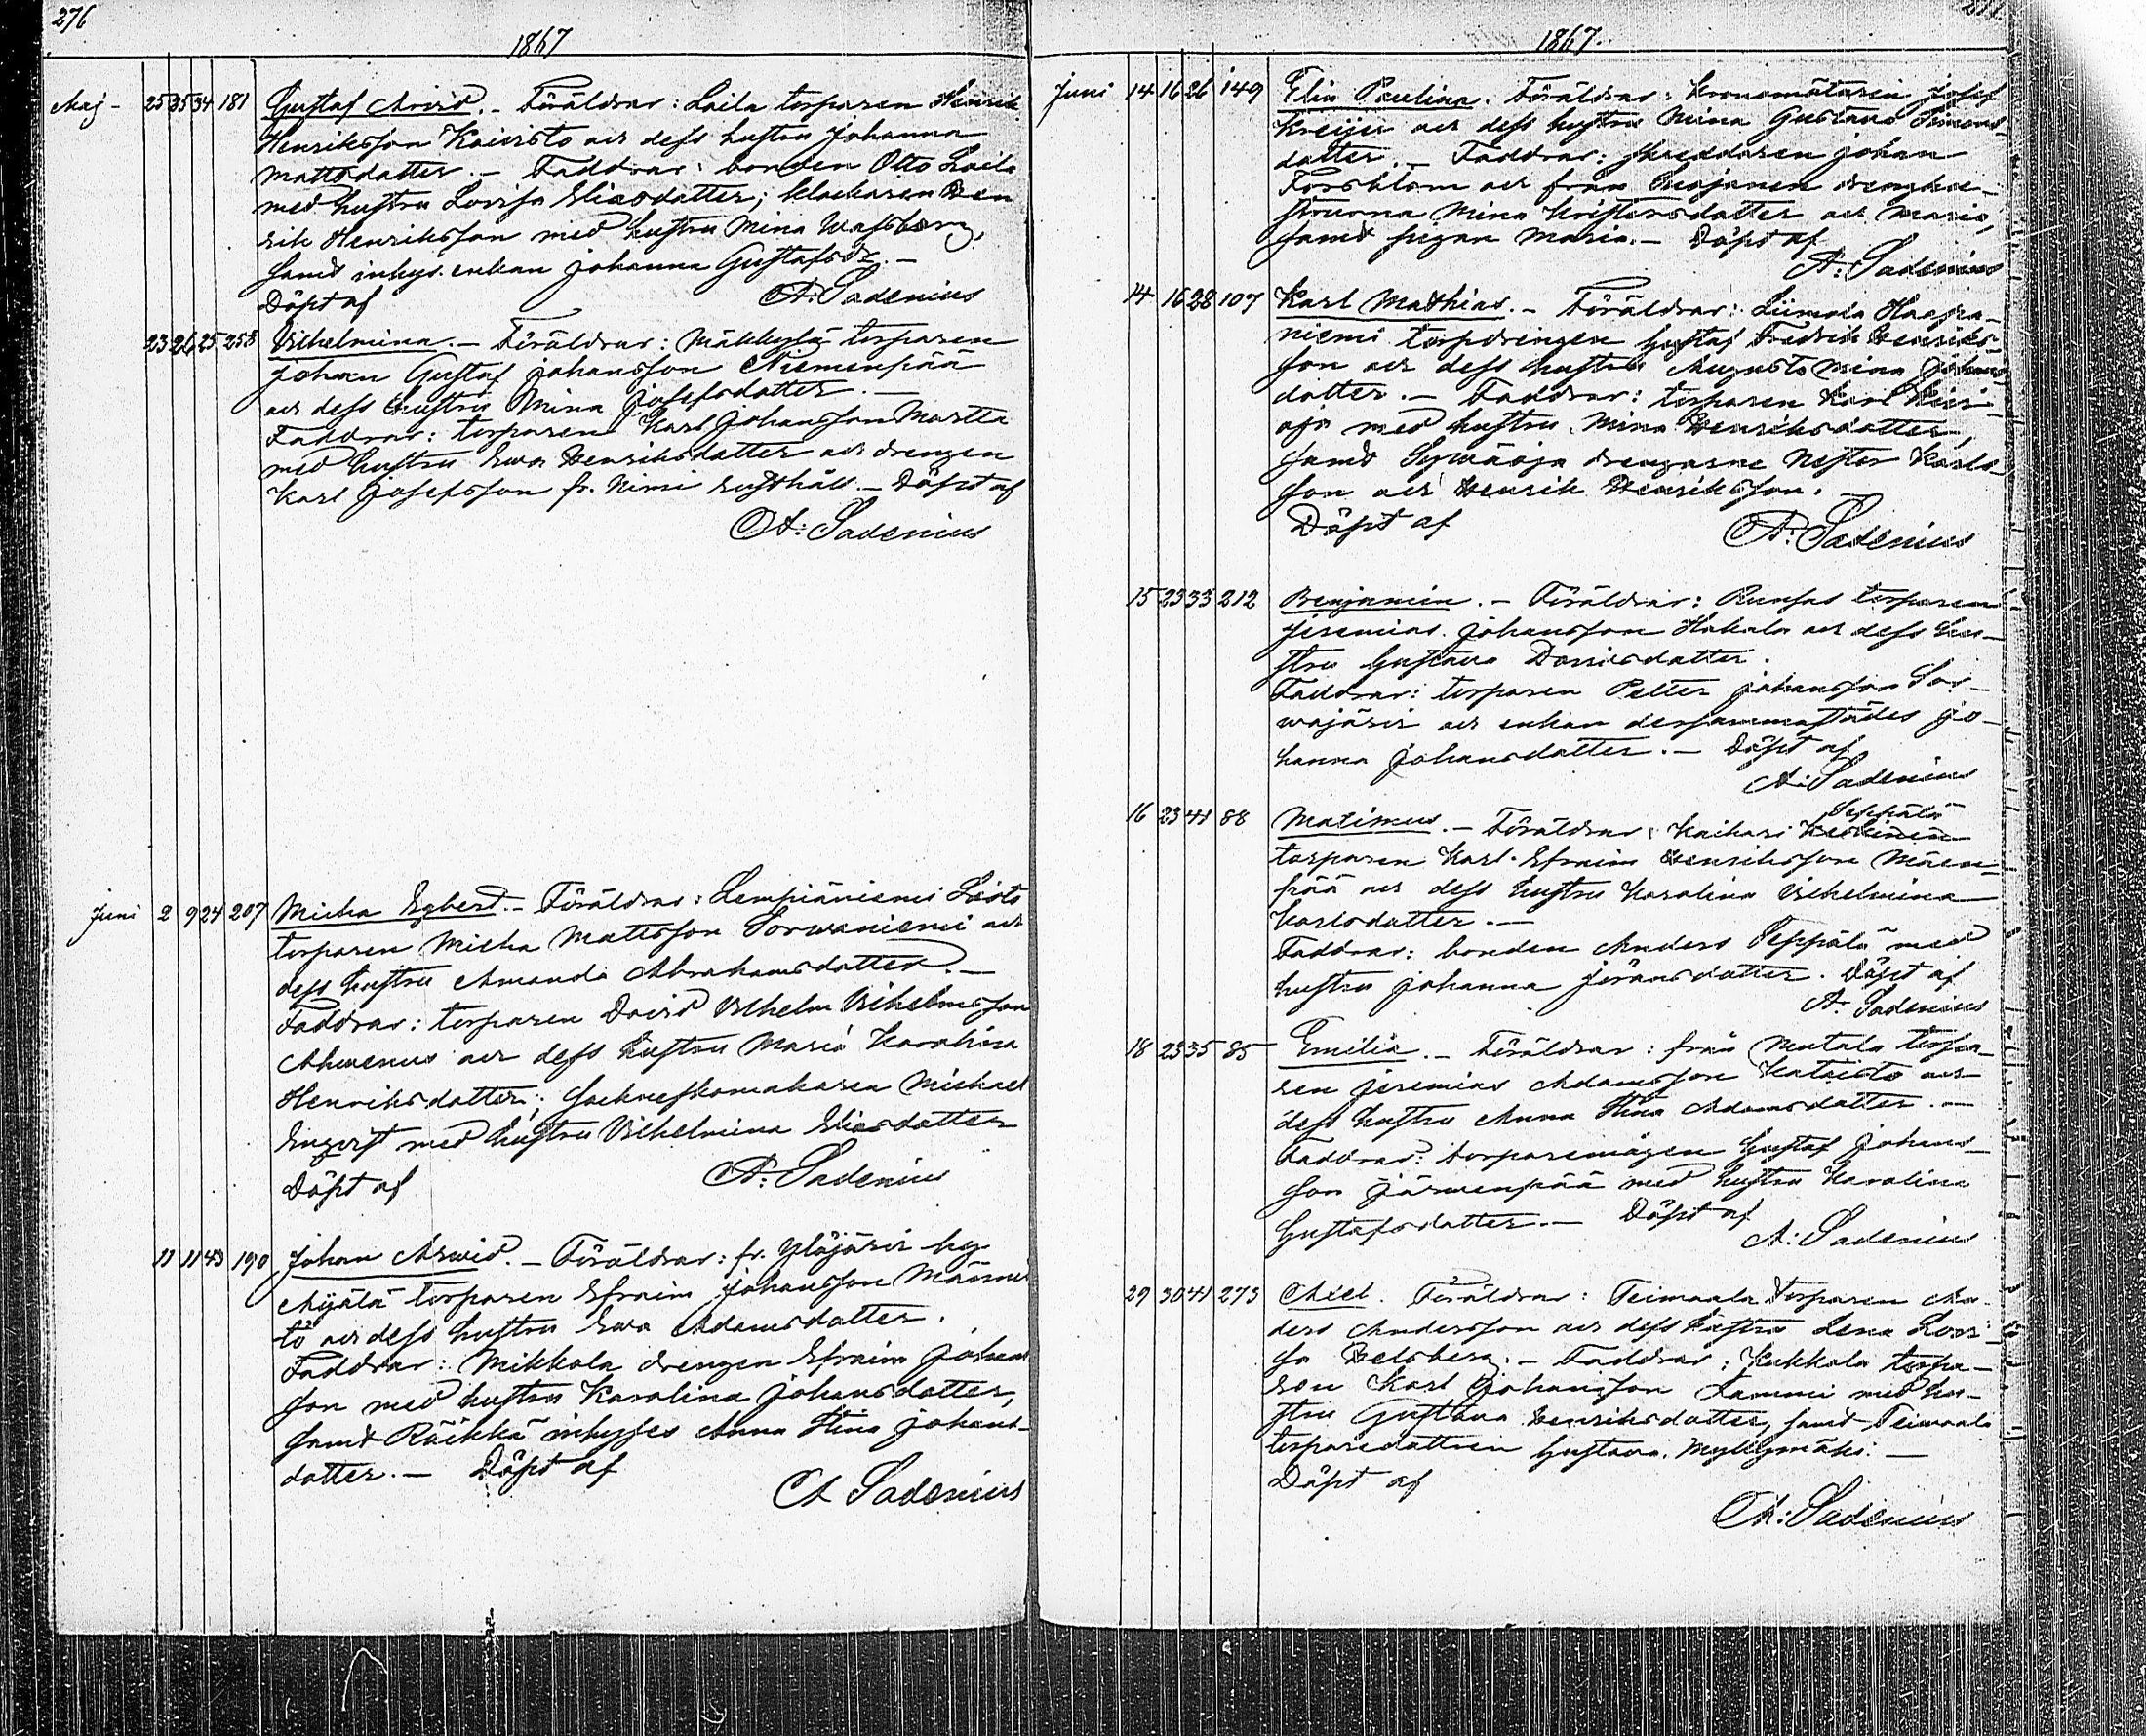 276
1867
Maj - 25 35 34 181 Gustaf Arvid. - Föräldrar: Laila torparen Henrik
Henriksson Koivisto och dess hustru Johanna
Mattsdotter. - Faddrar: bonden Otto Laila
med hustru Lovisa Eliasdotter; klockaren Hen
rik Henriksson med hustru Mina Wassberg,
samt inhys. enkan Johanna Gustafsdr. -
Döpt af A: Sadenius
23 26 25 258 Vilhelmina. - Föräldrar: Mäkkylä torparen
Johan Gustaf Johansson Niemenpää
och dess hustru Mina Josefsdotter. -
Faddrar: torparen Karl Johansson Martta
med hustru Ewa Henriksdotter och drengen
Karl Josefsson fr. Nimi rusthåll. - Döpt af
A: Sadenius
Juni 2 9 24 207 Micha Egbert. - Föräldrar: Lempiäniemi
torparen Micha Mattsson Sorwaniemi och
dess hustru Amanda Abrahamsdotter. -
Faddrar: torparen David Vilhelm Vilhelmsson
Ahvenus och dess hustru Maria Karolina
Henriksdotter; Sockneskomakaren Michael
Enqvist med hustru Vilhelmina Eliasdotter
Döpt af A: Sadenius
11 11 43 190 Johan Arwid. - Föräldrar: fr. Ylöjärvi by
Mijälä torparen Efraim Johansson Männis
tö och dess hustru Ewa Adamsdotter.
Faddrar: Mikkola drengen Efraim Johans
son med hustru Karolina Johansdotter,
samt Räikkä inhyses Anna Stina Johans-
dotter. - Döpt af
A Sadenius
277.
1867.
Juni 14 16 26 149 Elin Paulina. Föräldrar: Kronomätaren Josef
Kreijer och dess hustru Mina Gustava Simons-
dotter. - Faddrar: skreddaren Johan
Forsblom och från drenghu-
struarna Mina Kristersdotter och Maria,
samt pigan Maria. - Döpt af
A: Sadenius
14 16 28 107 Karl Mathias. - Föräldrar: Liimola Haapa-
niemi torpdrengen Gustaf Fredrik Henriks-
son och dess hustru Augusta Mina Johans
dotter. - Faddrar: torparen Karl
oja med hustru Mina Henriksdotter,
samt Sywäoja drengarne Nestor Karls-
son och Henrik Henriksson.
Döpt af A: Sadenius
15 23 33 212 Benjamin. - Föräldrar: Runsas torparen
Jeremias Johansson Hakala och dess hu-
stru Gustava Davidsdotter.
Faddrar: torparen Petter Johansson Sor-
wajärvi och enkan dersammastädes Jo-
hanna Johansdotter. - Döpt af
A: Sadenius
Seppälä
16 23 41 88 Matimus. - Föräldrar: Kaihari
torparen Karl Efraim Henriksson Mäen-
pää och dess hustru Karolina Vilhelmina
Karlsdotter. -
Faddrar: bonden Anders Seppälä med
hustru Johanna Göransdotter. Döpt af
A. Sadenius
18 23 35 85 Emilia. - Föräldrar: från Mutala torpa-
ren Jeremias Adamsson Kataisto och
dess hustru Anna Stina Adamsdotter. -
Faddrar: torparemågen Gustaf Johans-
son Järwenpää med hustru Karolina
Gustafsdotter. - Döpt af
A: Sadenius
29 30 41 273 Axel. Föräldrar: Teimaala torparen An-
ders Andersson och dess hustru Lena Lovi-
sa Belsberg. - Faddrar: Kukkola torpa-
ren Karl Johansson Lammi med hu-
stru Gustava Henriksdotter, samt Teimaala
torparedottren Gustava Myllymäki. -
Döpt af
A: Sadenius